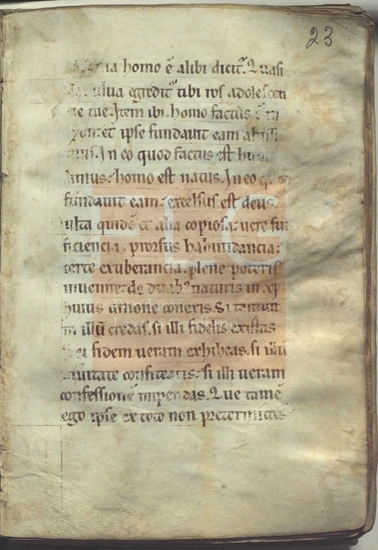 23
homo ē alibi dicit᷑. Quasi
uulua egredit᷑ tibi ros adolescen
tie tue. Item ibi. homo factus ē in
et ipse fundauit eam
In eo quod factus est
homo est natus. In eo
fundauit eam: excelsus est deus.
quidē et alia copiosa: uere suf
ficiencia. prorsus habundancia:
certe exuberancia. plene poteris
inuenire: de duabꝰ naturis in xp̄i
huius unione conexis. Si tantum
in illū credas. si illi fidelis existas
ei fidem ueram exhibeas. si illū
confitearis: si illi ueram
confessionē impendas. Que tamē
ego ipse ex toto non pretermictēs